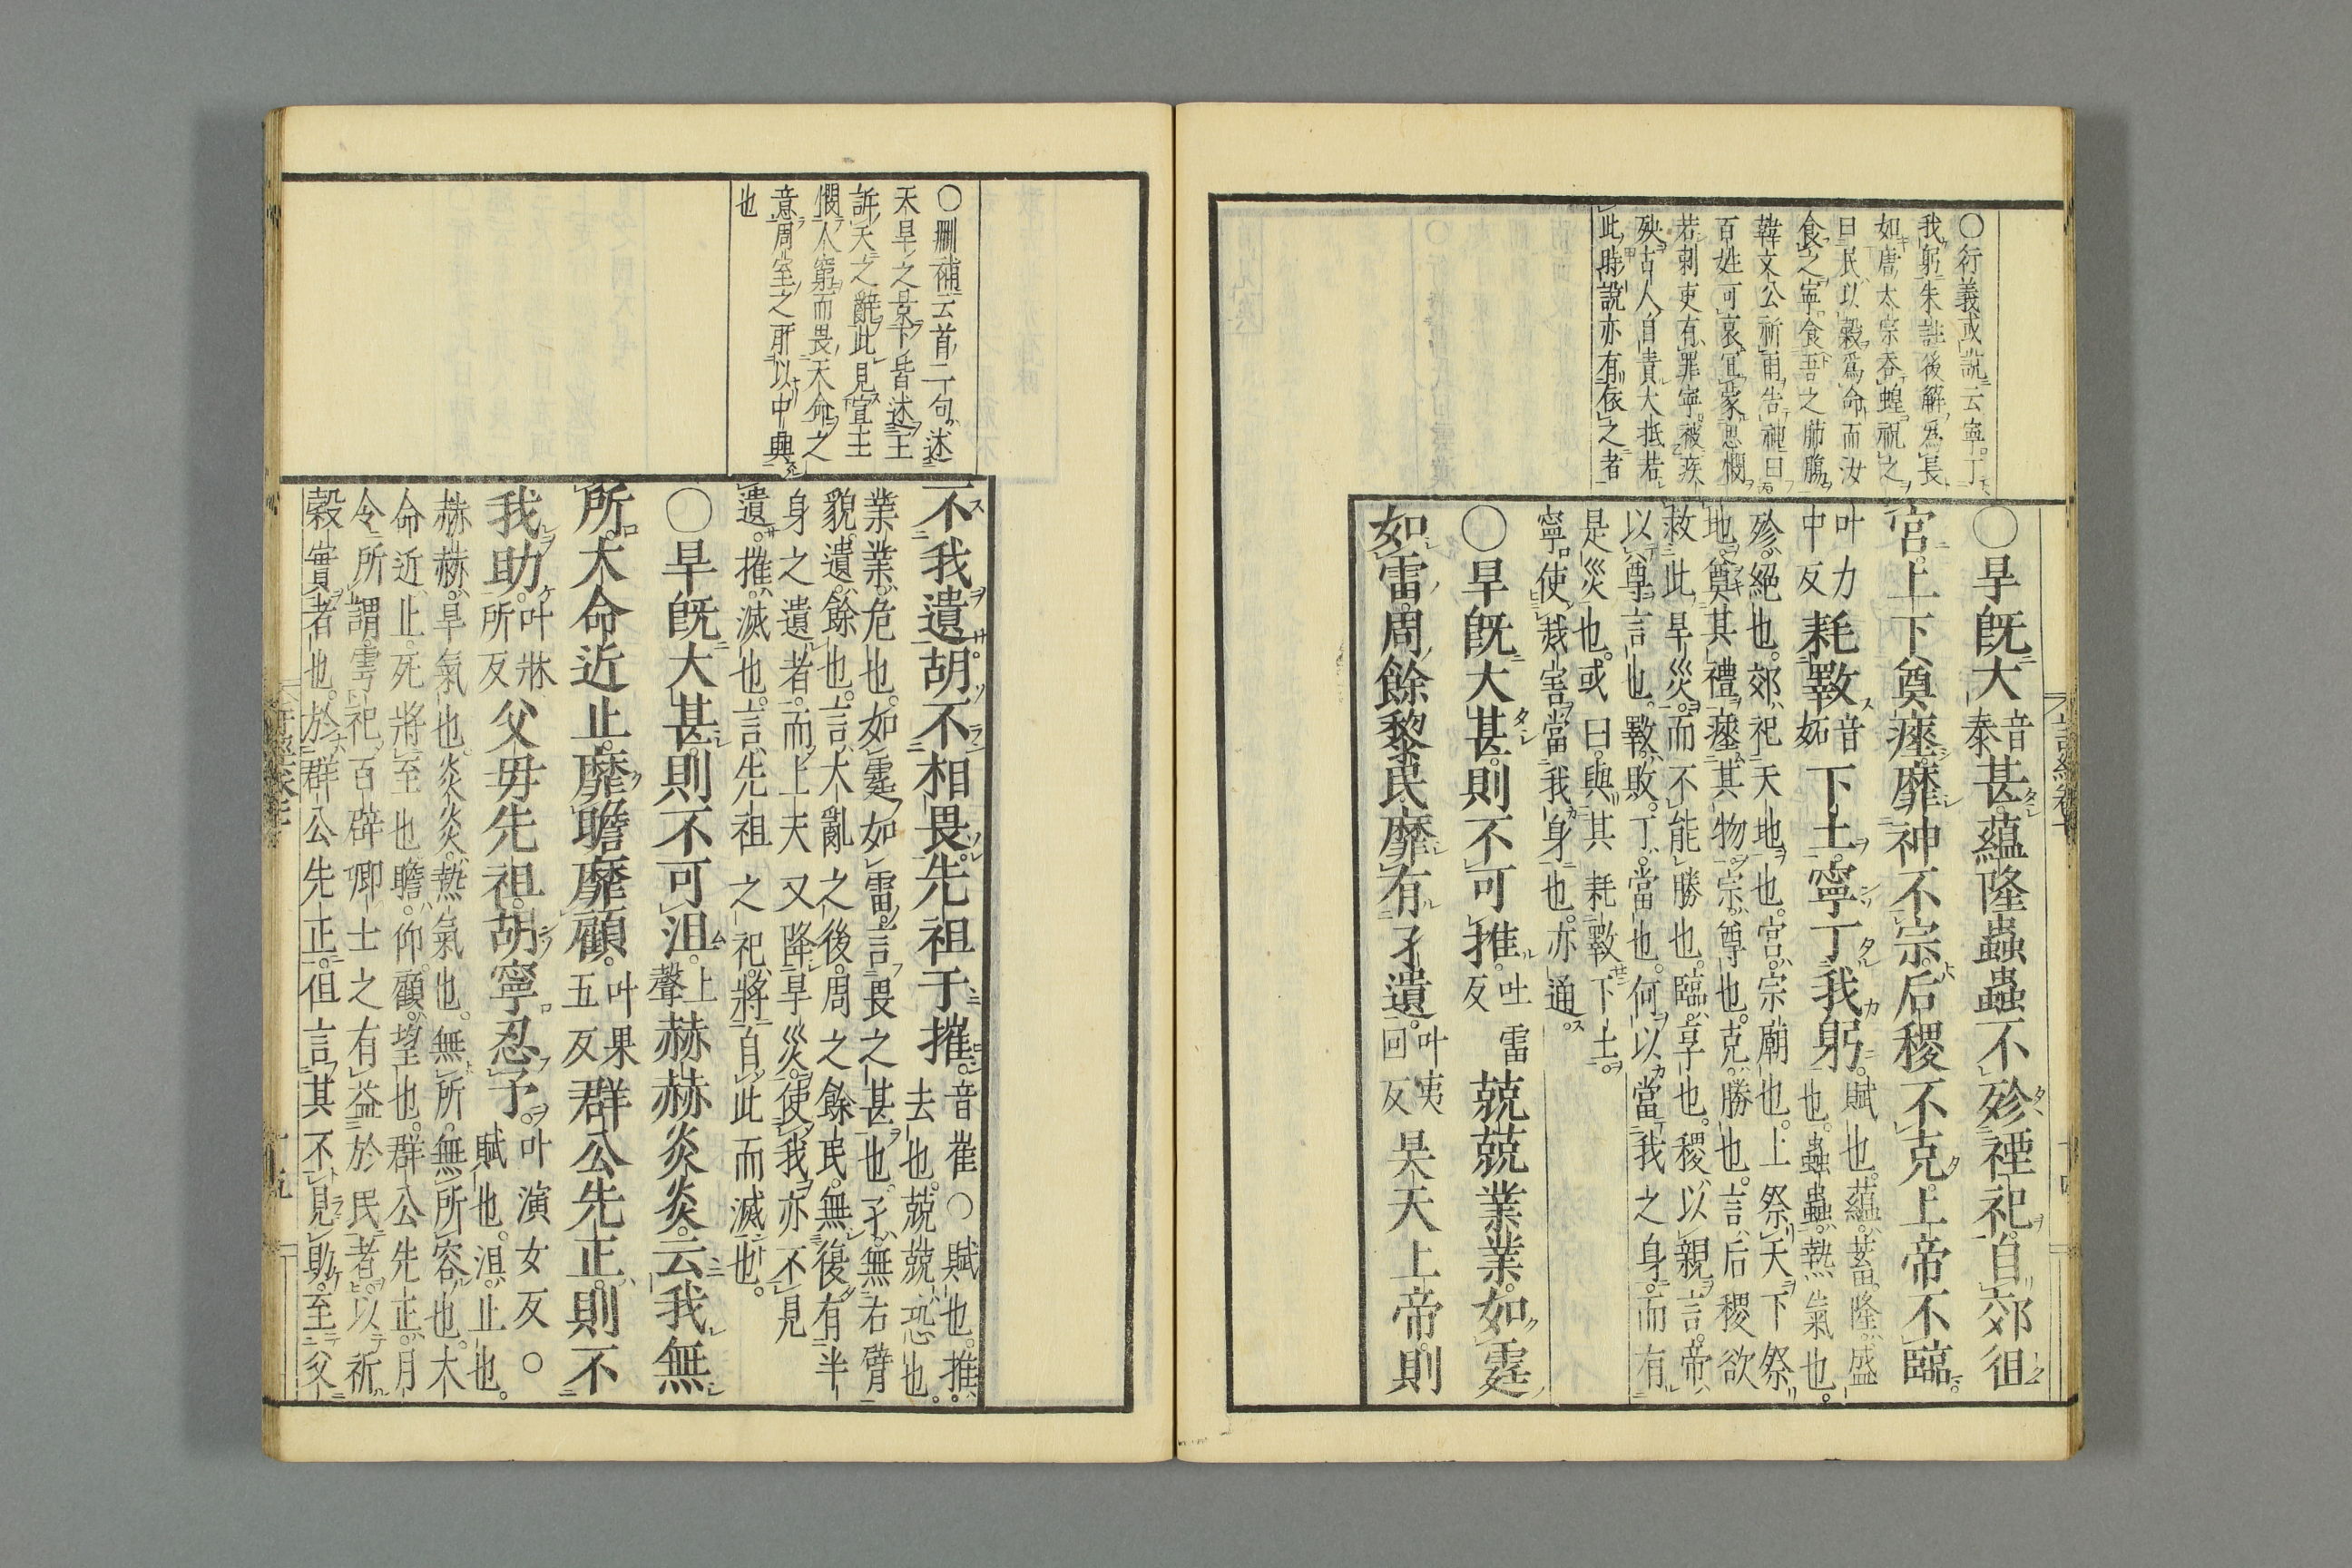 〇行義或説云寧丁
我躬朱註後解爲長
如唐太宗吞蝗祝之
曰民以穀爲命而汝
食之寧食吾之肺膓
韓文公祈雨告神曰
百姓可哀宜蒙恩憫
若刺吏有罪寧被疾
殃古人自責大抵若
此時說亦有依之者
〇旱旣大音泰甚蘊隆蟲蟲不殄禋祀自郊徂
宮上下奠瘞靡神不宗后稷不克上帝不臨
叶力中反耗斁音妬下土寧丁我躬賦也蘊蓄隆盛也蟲蟲熱氣也
殄絕也郊祀天地也宮宗廟也上祭天下祭
地奠其禮瘞其物宗尊也克勝也言后稷欲
救此旱災而不能勝也臨享也稷以親言帝
以尊言也斁敗丁當也何以當我之身而有
是災也或曰與其耗斁下土
寧使烖害當我身也亦通
〇旱旣大甚則不可推吐雷反兢兢業業如霆
如雷周餘黎民靡有孑遺叶夷回反昊天上帝則
〇刪補云首二句述
天旱之景下皆述王
訴天之辭此見宣王
憫人窮而畏天命之
意周室之所以中興
也
不我遺胡不相畏先祖于摧音崔〇賦也推去也兢兢恐也
業業危也如霆如雷言畏之甚也孑無右臂
貌遺餘也言大亂之後周之餘民無復有半
身之遺者而上天又降旱災使我亦不見
遺摧滅也言先祖之祀將自此而滅也
〇旱旣大甚則不可沮上聲赫赫炎炎云我無
所大命近止靡瞻靡顧叶果五反群公先正則不
我助叶牀所反父母先祖胡寧忍予叶演女反〇賦也沮止也
赫赫旱氣也炎炎熱氣也無所無所容也大
命近止死將至也瞻仰顧望也群公先正月
令所謂雩祀百辟卿士之有益於民者以祈
穀實者也於群公先正但言其不見助至父